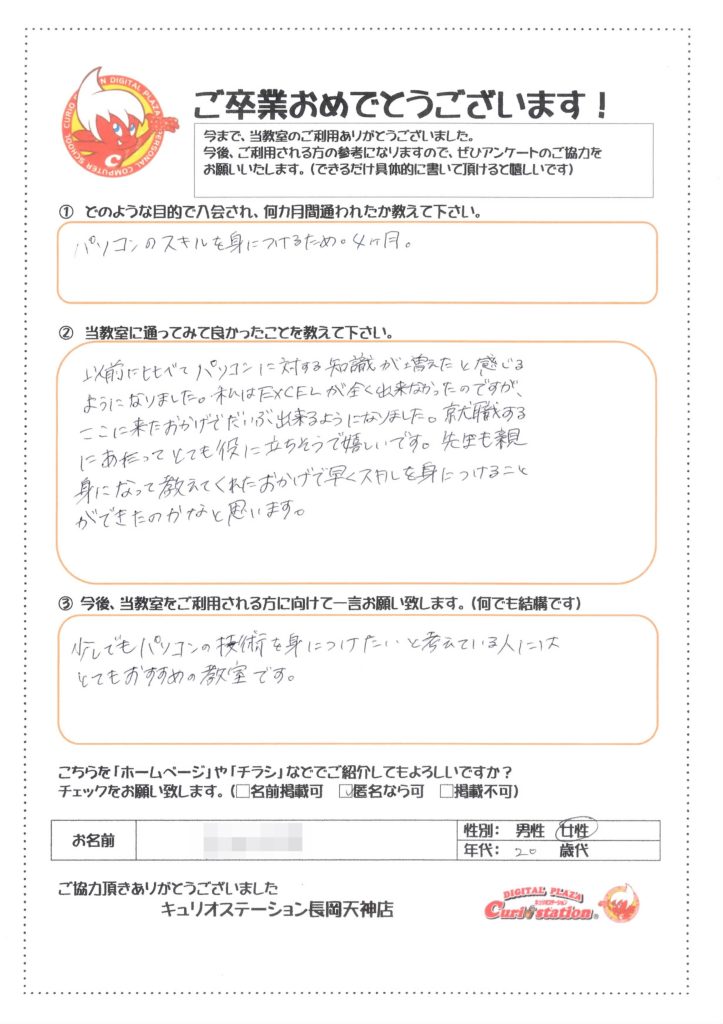 CURIO STATION DIGITAL PLAZA PERSONAL COMPUTER SCHOOL
ご卒業おめでとうございます！
今まで、当教室のご利用ありがとうございました。
今後、ご利用される方の参考になりますので、ぜひアンケートのご協力を
お願いいたします。（できるだけ具体的に書いて頂けると嬉しいです）
① どのような目的で入会され、何カ月間通われたか教えて下さい。
パソコンのスキルを身につけるため。4ヶ月。
② 当教室に通ってみて良かったことを教えて下さい。
以前にくらべてパソコンに対する知識が増えたと感じる
ようになりました。私はEXCELが全く出来なかったのですが、
ここに来たおかげでだいぶ出来るようになりました。就職する
にあたってとても役に立ちそうで嬉しいです。先生も親
身になって教えてくれたおかげで早くスキルを身につけること
ができたのかなと思います。
③ 今後、当教室をご利用される方に向けて一言お願い致します。（何でも結構です）
少しでもパソコンの技術を身につけたいと考えている人には
とてもおすすめの教室です。
こちらを「ホームページ」や「チラシ」などでご紹介してもよろしいですか？
チェックをお願い致します。（□名前掲載可 ☑匿名なら可 □掲載不可）
お名前
性別： 男性 女性
年代： 20 歳代
ご協力頂きありがとうございました
キュリオステーション長岡天神店
DIGITAL PLAZA
キュリオステーション
Curio station®